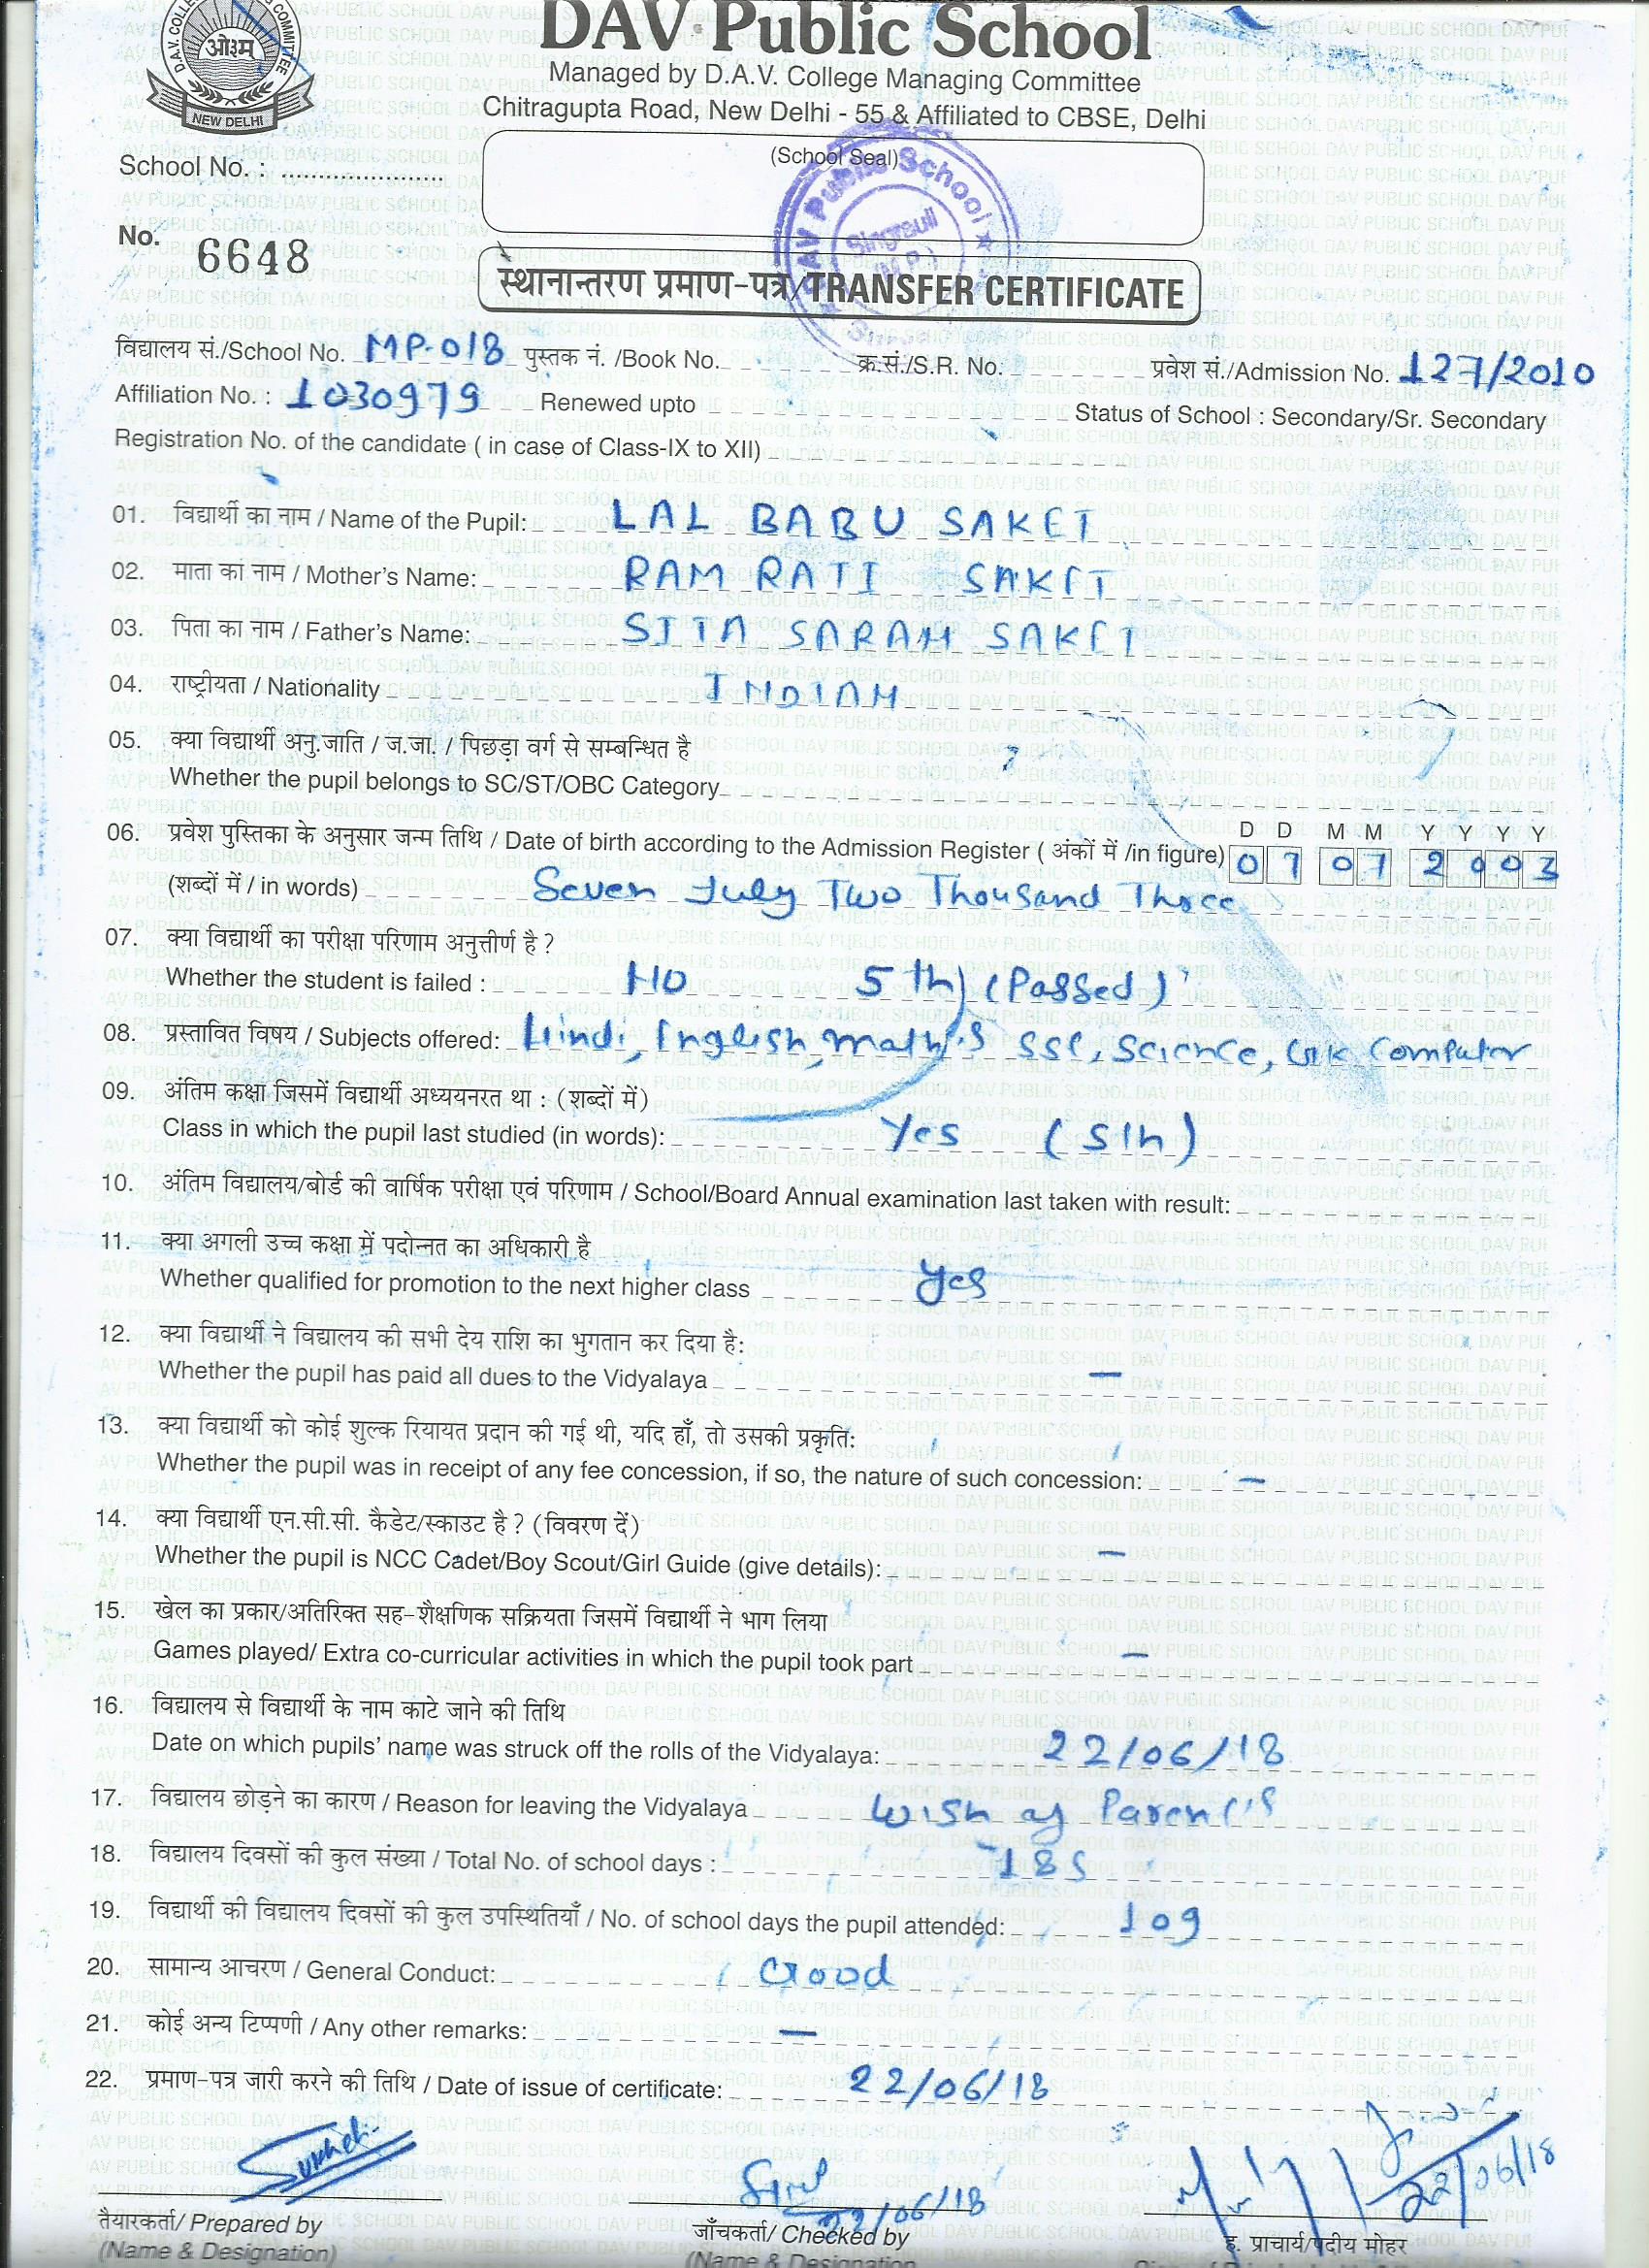 DAV Public School
Managed by D.A.V. College Managing Committee
Chitragupta Road, New Delhi - 55 & Affiliated to CBSE, Delhi
ओ३म्
NEW DELHI
(School Seal)
DAV Public School
Singrauli
(M.P.)
School No. :
No. 6648
स्थानान्तरण प्रमाण-पत्र/TRANSFER CERTIFICATE
विद्यालय सं./School No. MP-018 पुस्तक नं. /Book No. क्र.सं./S.R. No. प्रवेश सं./Admission No. 127/2010
Affiliation No. : 1030979 Renewed upto Status of School : Secondary/Sr. Secondary
Registration No. of the candidate ( in case of Class-IX to XII)
01. विद्यार्थी का नाम / Name of the Pupil: LAL BABU SAKET
02. माता का नाम / Mother's Name: RAM RATI SAKET
03. पिता का नाम / Father's Name: SITA SARAN SAKET
04. राष्ट्रीयता / Nationality INDIAN
05. क्या विद्यार्थी अनु.जाति / ज.जा. / पिछड़ा वर्ग से सम्बन्धित है
Whether the pupil belongs to SC/ST/OBC Category
D D M M Y Y Y Y
06. प्रवेश पुस्तिका के अनुसार जन्म तिथि / Date of birth according to the Admission Register ( अंकों में /in figure) 07 07 2003
(शब्दों में / in words) Seven July Two Thousand Three
07. क्या विद्यार्थी का परीक्षा परिणाम अनुत्तीर्ण है ?
Whether the student is failed : NO 5th) (Passed)
08. प्रस्तावित विषय / Subjects offered: Hindi, English, Math's SSC, Science, GK Computer
09. अंतिम कक्षा जिसमें विद्यार्थी अध्ययनरत था : (शब्दों में)
Class in which the pupil last studied (in words): Yes (5th)
10. अंतिम विद्यालय/बोर्ड की वार्षिक परीक्षा एवं परिणाम / School/Board Annual examination last taken with result:
11. क्या अगली उच्च कक्षा में पदोन्नत का अधिकारी है
Whether qualified for promotion to the next higher class yes
12. क्या विद्यार्थी ने विद्यालय की सभी देय राशि का भुगतान कर दिया है:
Whether the pupil has paid all dues to the Vidyalaya —
13. क्या विद्यार्थी को कोई शुल्क रियायत प्रदान की गई थी, यदि हाँ, तो उसकी प्रकृति:
Whether the pupil was in receipt of any fee concession, if so, the nature of such concession: —
14. क्या विद्यार्थी एन.सी.सी. कैडेट/स्काउट है ? (विवरण दें)
Whether the pupil is NCC Cadet/Boy Scout/Girl Guide (give details): —
15. खेल का प्रकार/अतिरिक्त सह-शैक्षणिक सक्रियता जिसमें विद्यार्थी ने भाग लिया
Games played/ Extra co-curricular activities in which the pupil took part —
16. विद्यालय से विद्यार्थी के नाम काटे जाने की तिथि
Date on which pupils' name was struck off the rolls of the Vidyalaya: 22/06/18
17. विद्यालय छोड़ने का कारण / Reason for leaving the Vidyalaya Wish of Parent's
18. विद्यालय दिवसों की कुल संख्या / Total No. of school days : 185
19. विद्यार्थी की विद्यालय दिवसों की कुल उपस्थितियाँ / No. of school days the pupil attended: 109
20. सामान्य आचरण / General Conduct: Good
21. कोई अन्य टिप्पणी / Any other remarks: —
22. प्रमाण-पत्र जारी करने की तिथि / Date of issue of certificate: 22/06/18
22/06/18
22/06/18
तैयारकर्ता/ Prepared by
(Name & Designation)
जाँचकर्ता/ Checked by
(Name & Designation
ह. प्राचार्य/पदीय मोहर